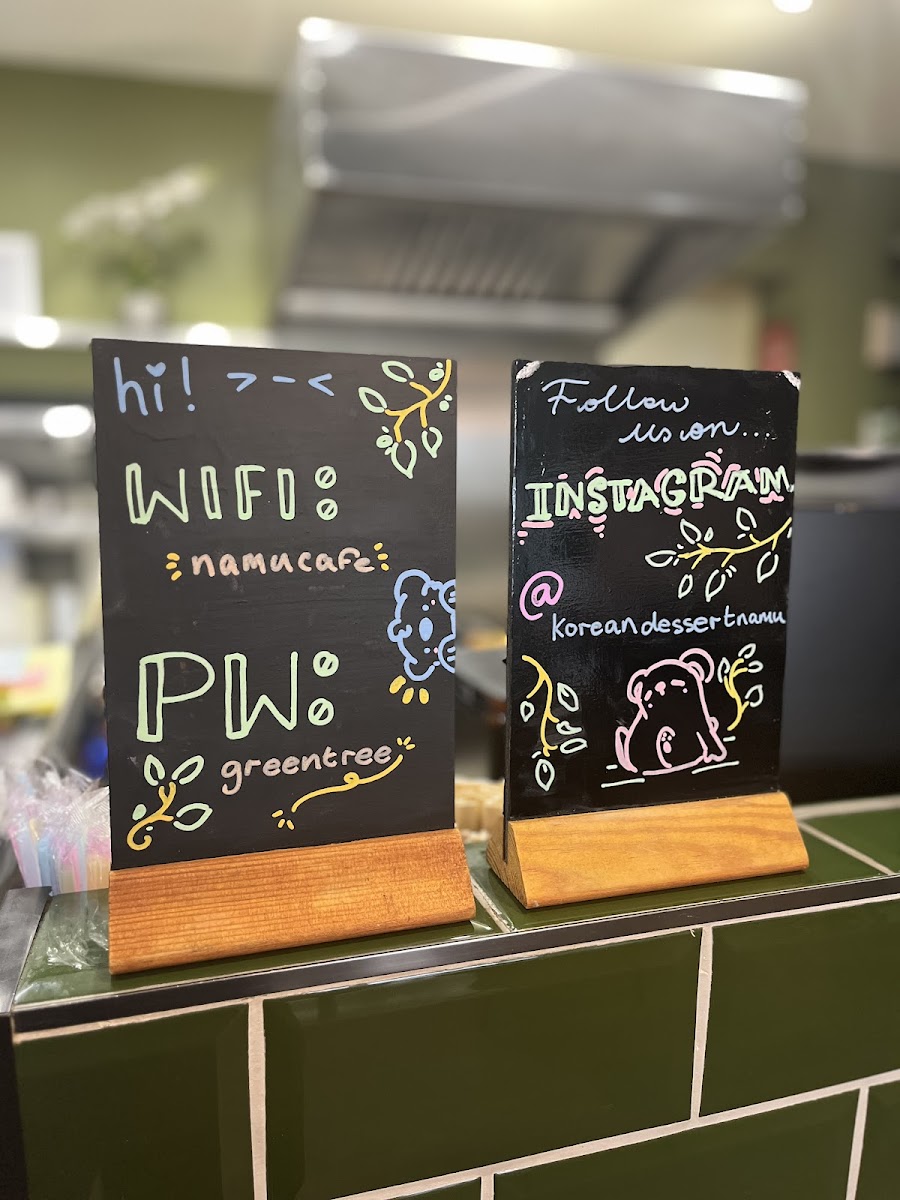 hi! > - <
WIFI:
namucafe
PW:
greentree
Follow
us on...
INSTAGRAM
@
koreandessertnamu